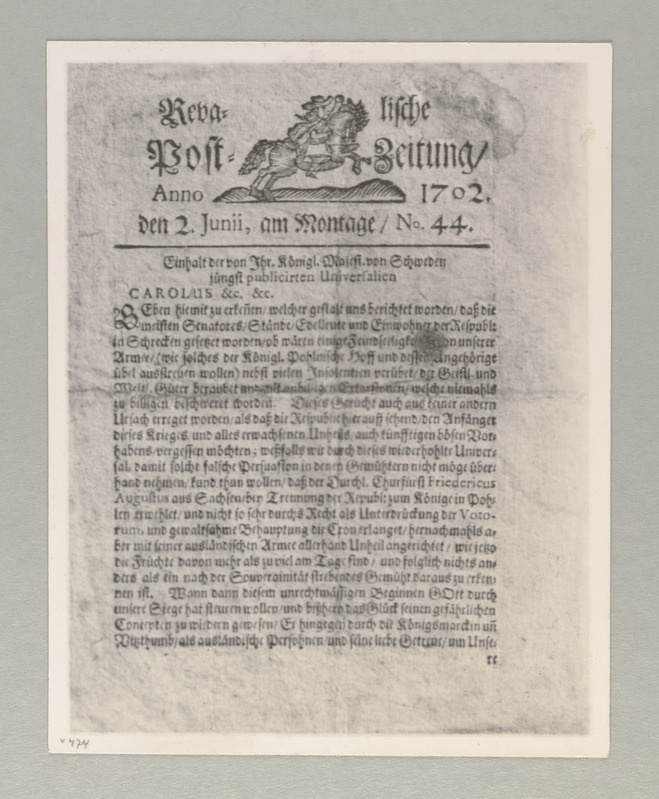 Reva- lische
Post- Zeitung/
Anno 1702.
den 2. Junii, am Montage / No. 44.
Einhalt der von Ihr. Königl. Majest. von Schweden
jüngst publicirten Universalien
CAROLUS &c. &c.
GEben hiemit zu erkeñen / welcher gestalt uns berichtet worden / daß die
meisten Senatores / Stände / Edelleute und Einwohner der Respubl:
in Schrecken gesetzet worden / ob wären einige Feindseeligkei von unserer
Armee / (wie solches der Königl. Pohlnische Hoff und dessen Angehörige
übel ausstreuen wollen) nebst vielen Insolentien verübet / der Geistl. und
Weltl. Güter beraubet und mit unbilligen Extorsionen / welche niemahls
zu billigen beschweret worden. Dieses Gerücht auch aus keiner andern
Ursach erreget worden / als daß die Respublic hierauff sehend / den Anfänger
dieses Krieges / und alles erwachsenen Unheils / auch künfftigen bösen Vor-
habens / vergessen möchten; weßfalls wir durch dieses wiederhohlte Univer-
sal, damit solche falsche Persuasion in denen Gemühtern nicht möge über-
hand nehmen / kund thun wollen / daß der Durchl. Churfürst Fridericus
Augustus aus Sachsen / bey Trennung der Republ: zum Könige in Poh-
len erwehlet / und nicht so sehr durchs Recht als Unterdrückung der Voto-
rum, und gewaltsahme Behauptung die Cron erlanget / hernachmahls a-
ber mit seiner ausländischen Armee allerhand Unheil angerichtet / wie jetzo
die Früchte davon mehr als zu viel am Tage sind / und folglich nichts an-
ders als ein nach der Souverainität strebendes Gemüht daraus zu erken-
nen ist. Wann dann diesem unrechtmässigen Beginnen GOtt durch
unsere Siege hat steuren wollen / und bißhero das Glück seinen gefährlichen
Concepten zu wiedern gewesen / Er hingegen durch die Königsmarcken uñ
Vitzthumb / als ausländische Persohnen / und seine liebe Getreue / um Unse-
re
v 474